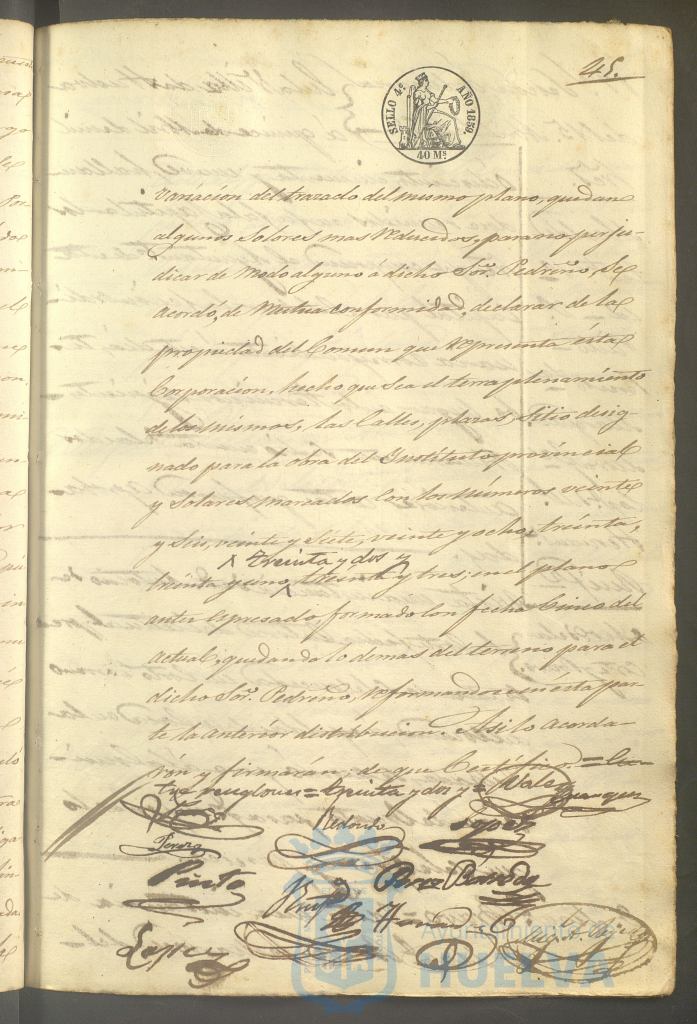 45.
SELLO 4º AÑO 1859.
40 Ms
variacion del trazado del mismo plano, quedan
algunos Solares mas reducidos, para no perju-
dicar de modo alguno á dicho Sor. Pedreño, Se
acordó, de mutua conformidad, declarar de la
propiedad del Comun que representa ésta
Corporacion, hecho que sea el terraplenamiento
de los mismos, las Calles, plazas, Sitio desig-
nado para la obra del Instituto provincial
y Solares marcados con los números veinte
y Seis, veinte y Siete, veinte y ocho, treinta,
treinta y dos y
treinta y uno, treinta y tres; en el plano
antes espresado, formado con fecha Cinco del
actual; quedando lo demas del terreno para el
dicho Sor. Pedreño, reformandose en ésta par-
te la anterior distribucion. Asi lo acorda-
rón y firmarón, de que Certifico. = En-
tre renglones = treinta y dos y = Vale
Redondo
Lopez
Perez
Pinto
Lopez
Ayuntamiento de
HUELVA